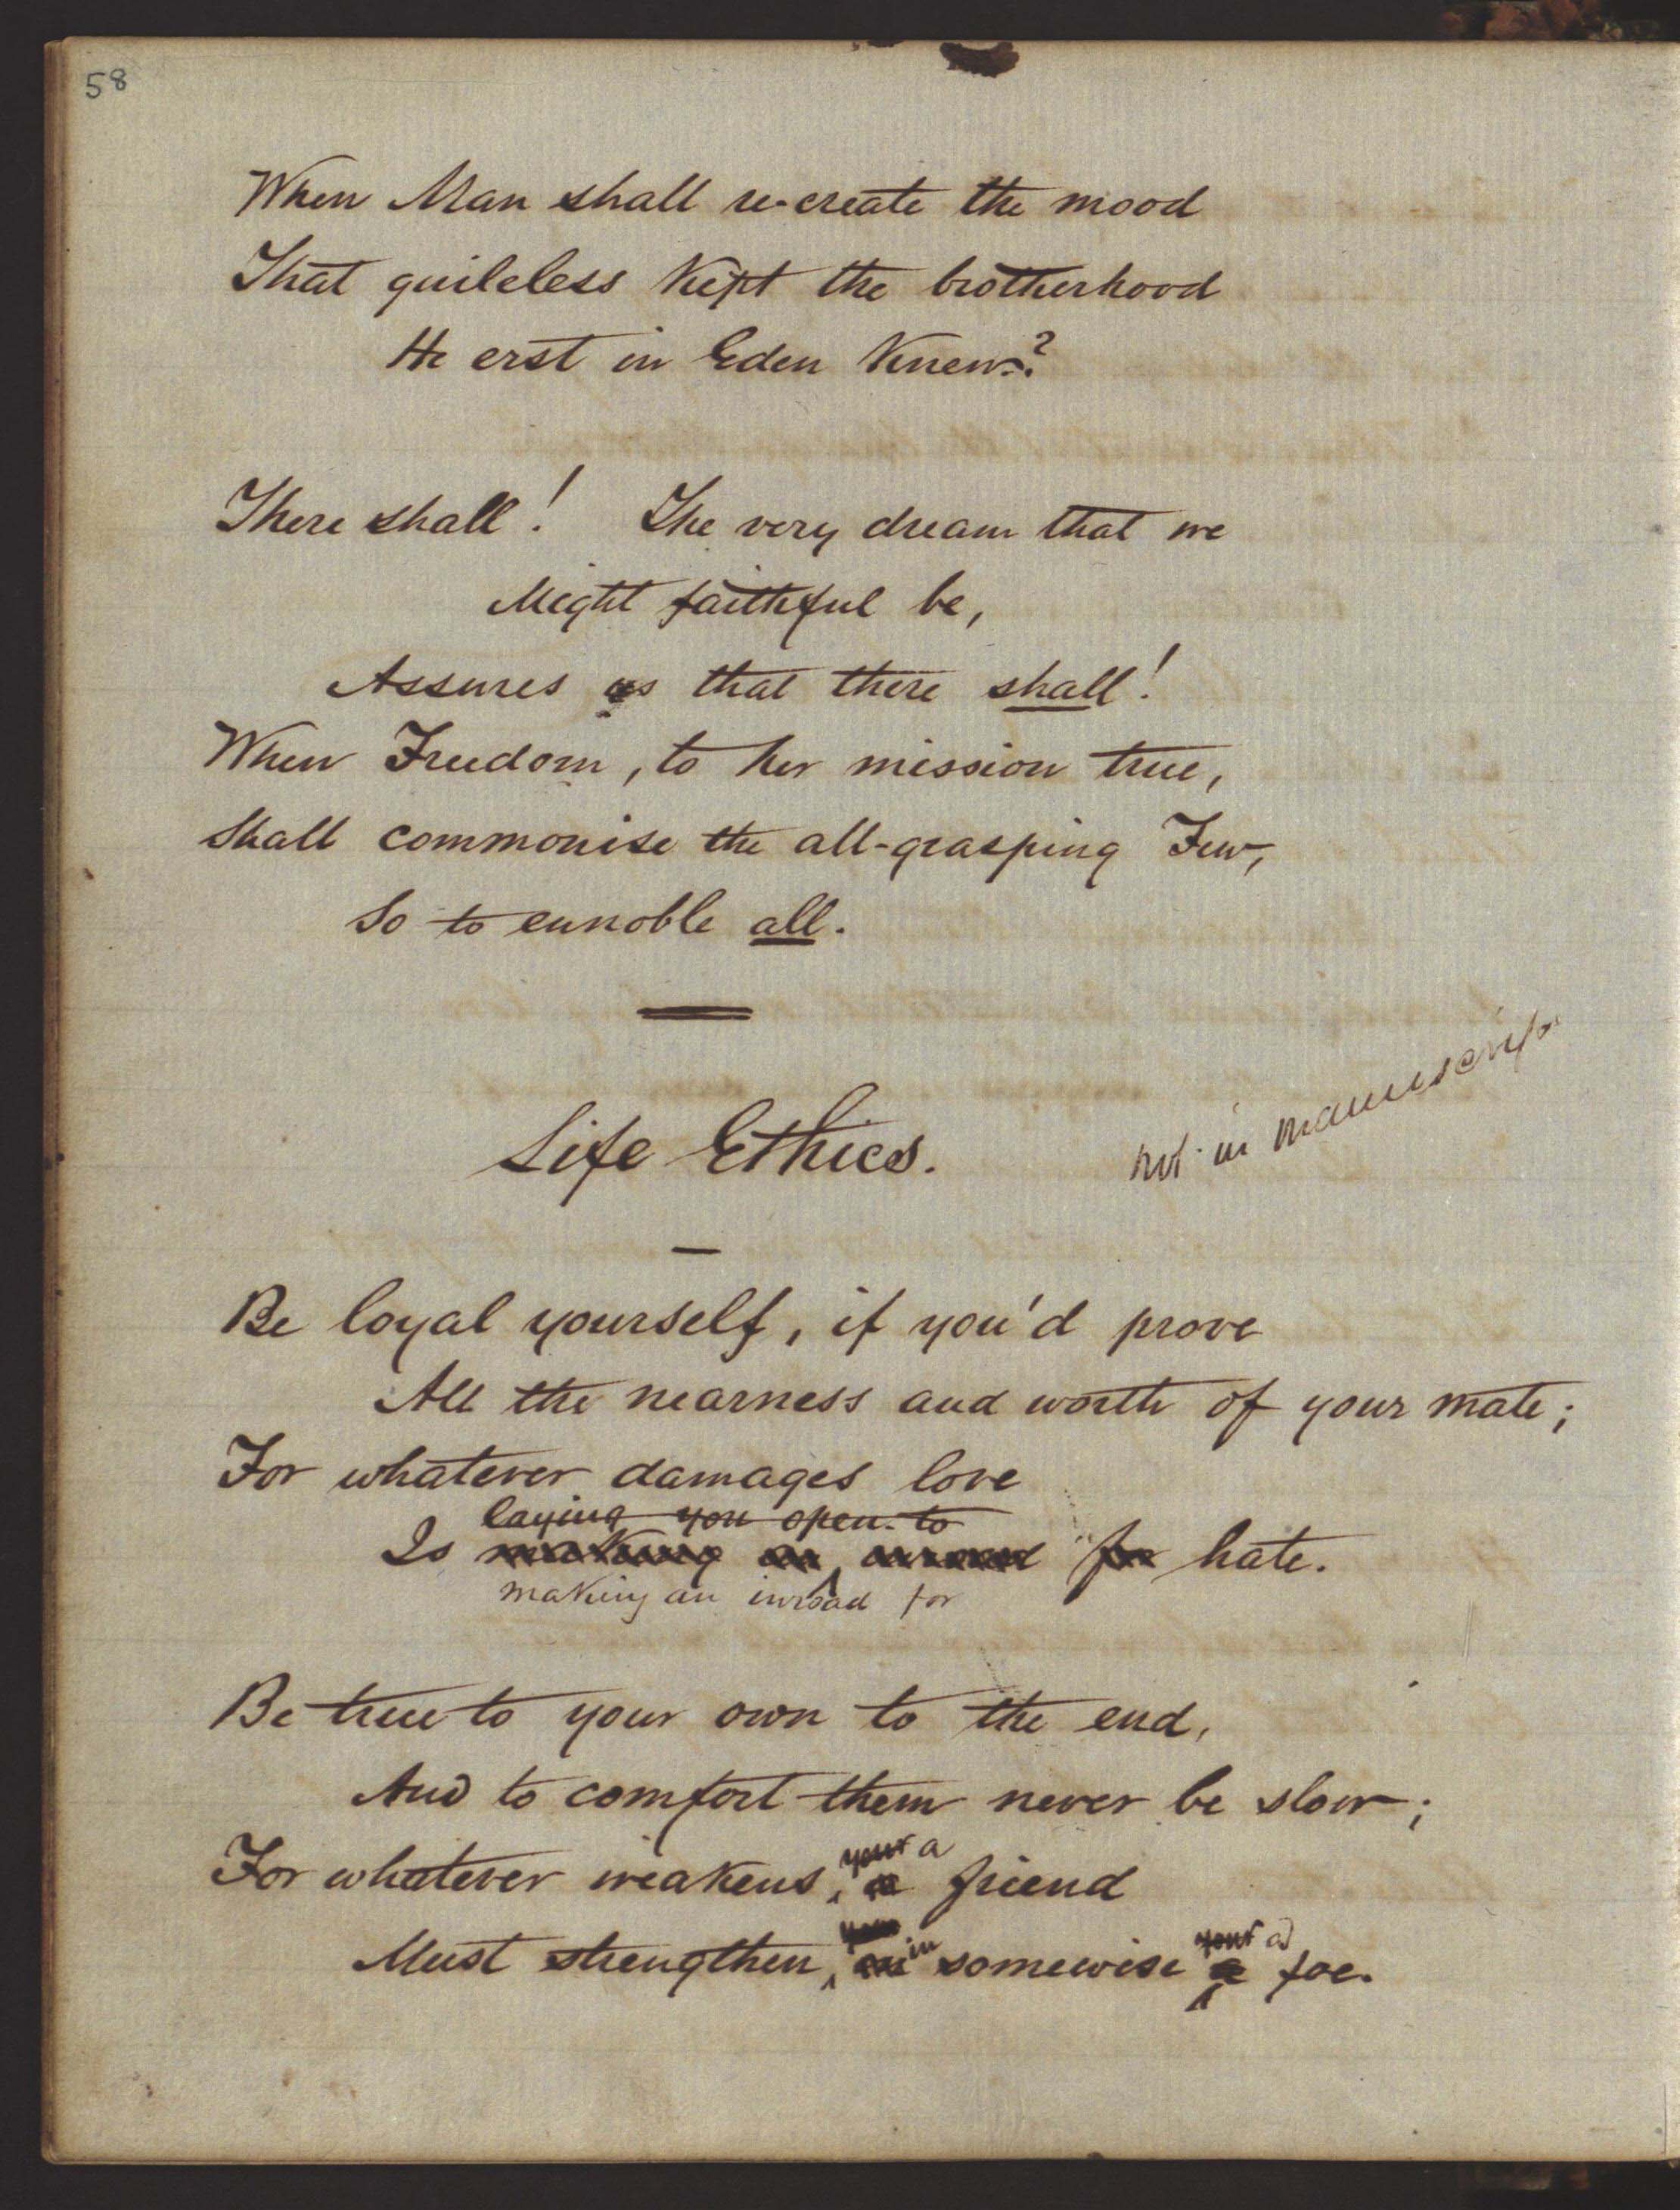 58
When Man shall re-create the mood
That guileless kept the brotherhood
He erst in Eden knew?
There shall! The very dream that we
Might faithful be,
Assures us that there shall!
When Freedom, to her mission true,
Shall commonise the all-grasping Few,
So to ennoble all.
Life Ethics.
not in manuscript
Be loyal yourself, if you'd prove
All the nearness and worth of your mate;
For whatever damages love
laying you open to
Is making an inroad for hate.
making an inroad for
Be true to your own to the end,
And to comfort them never be slow;
your a
For whatever weakens, a friend
your in your a
Must strengthen, in somewise a foe.